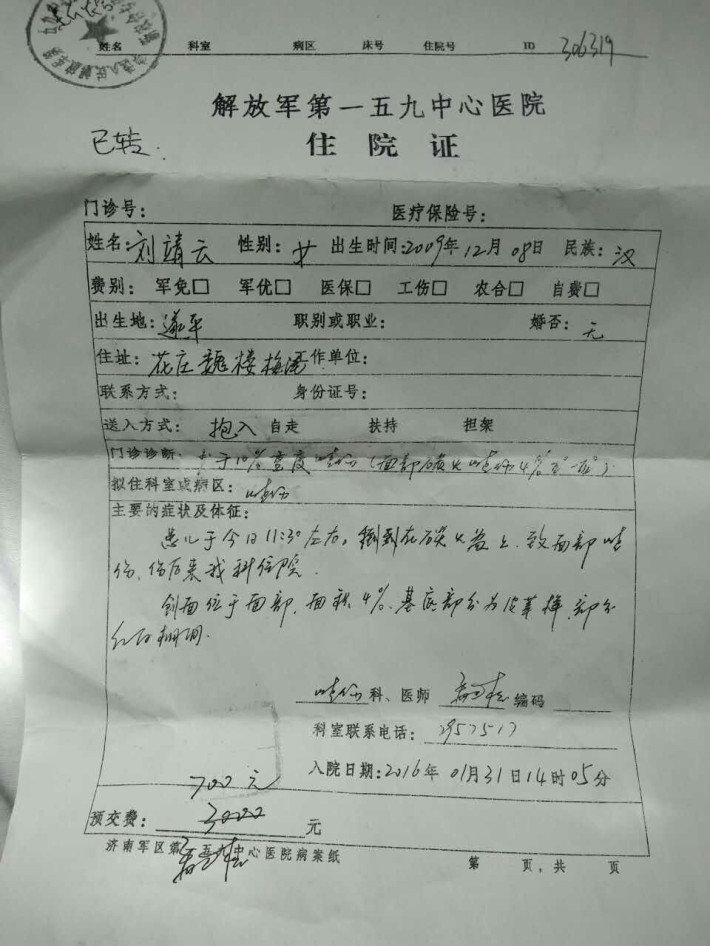 姓名 科室 病区 床号 住院号 ID 306319
解放军第一五九中心医院
已转.
住院证
门诊号: 医疗保险号:
姓名:刘靖云 性别:女 出生时间:2009年12月08日 民族:汉
费别: 军免□ 军优□ 医保□ 工伤□ 农合□ 自费□
出生地:遂平 职别或职业: 婚否:无
住址:花庄魏楼 作单位:
联系方式: 身份证号:
送入方式: 抱入 自走 扶持 担架
门诊诊断: 小于10% 度烧伤(面部碳火烧伤4%
拟住科室或病区: 烧伤
主要的症状及体征:
患儿于今日11:30左右,倒到在碳火盆上,致面部烧
伤,伤后来我科住院.
创面位于面部,面积4%,基底部分为皮革样,部分
红白相间.
烧伤 科、医师 编码
科室联系电话: 2957517
入院日期:2016年01月31日14时05分
700元
预交费: 3000 元
济南军区第一五九中心医院病案纸
第 页,共 页